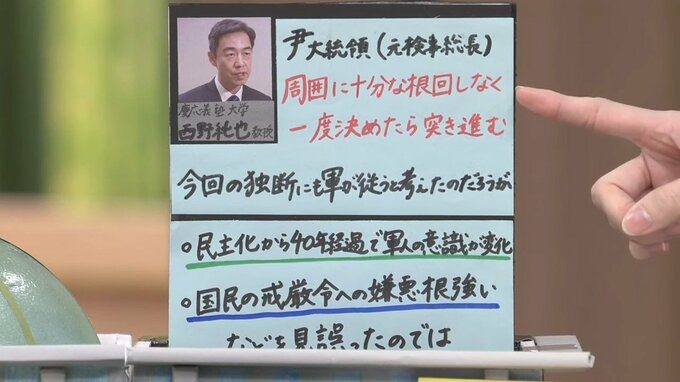 尹大統領(元検事総長)
周囲に十分な根回しなく
一度決めたら突き進む
慶応義塾大学
西野純也教授
今回の独断にも軍が従うと考えたのだろうが
○民主化から40年経過で軍人の意識が変化
○国民の戒厳令への嫌悪根強い
などを見誤ったのでは